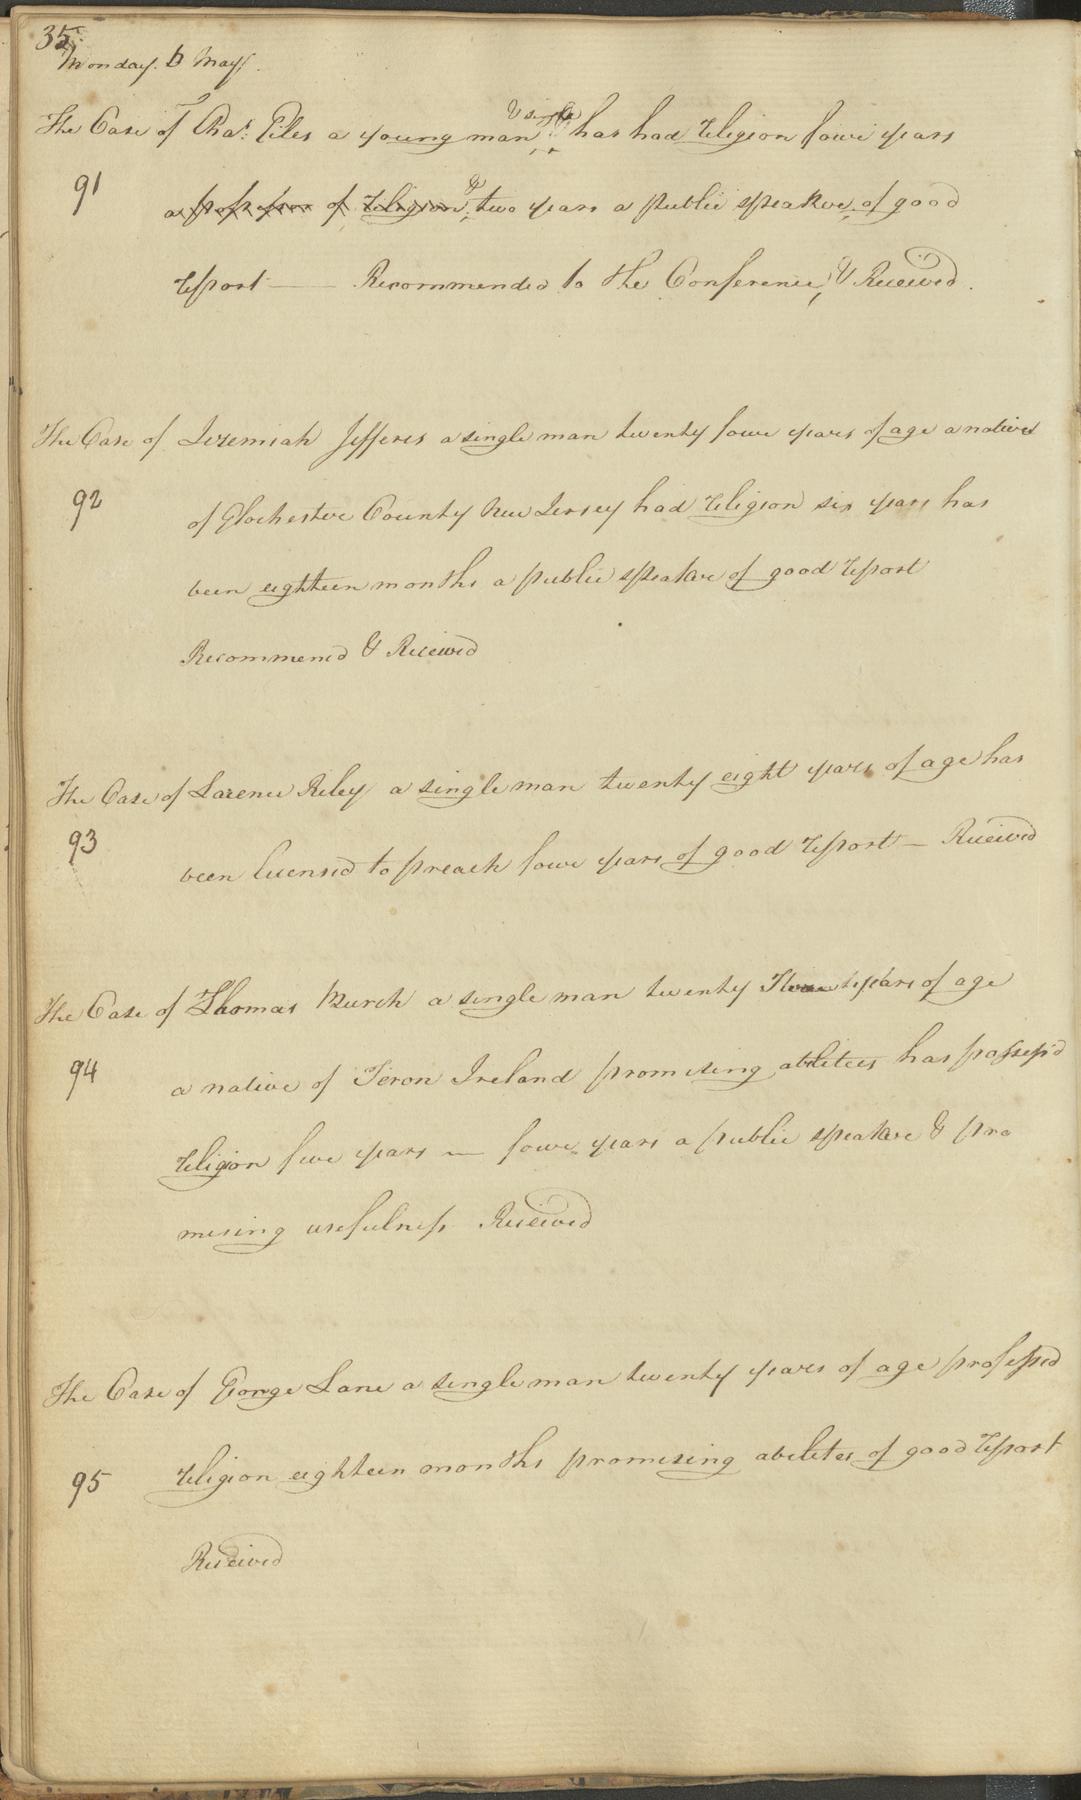 35
Monday. 6 May.
& single
The Case of Chas: Giles a young man, has had religion foure years
91
a professor of religion, & two years a public speaker, of good
report —— Recommended to the Conference, & Received.
The Case of Jeremiah Jefferis a single man twenty foure years of age a native
92
of Glochester County New Jersey had religion six years has
been eighteen months a public speaker of good report
Recommend & Received
The Case of Larence Reley a single man twenty eight years of age has
93
been licensed to preach foure years of good report — Received
The Case of Thomas Burch a single man twenty years of age
94
a native of Teron Ireland promising abilities has possess'd
religion five years — foure years a public speaker & pro
mising usefulness Received
The Case of George Lane a single man twenty years of age professed
95
religion eighteen months promising abilites of good report
Received